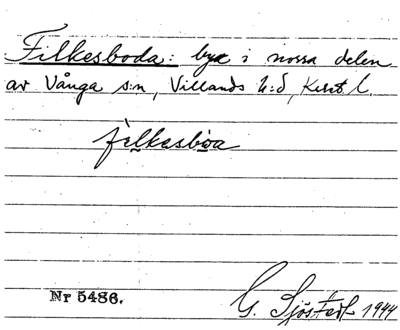 Filkesboda: bya i norra delen
av Vånga s:n, Villands h:d, Krist l.
fìlkesbòa
Nr 5486. G. Sjöstedt 1944